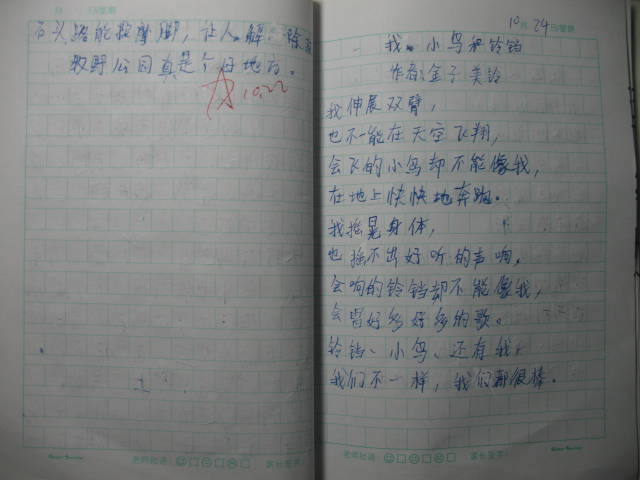 石头路能按摩脚，让人解除
牧野公园真是个好地方。
10.22
10月24日星期
我、小鸟和铃铛
作者:金子美铃
我伸展双臂，
也不能在天空飞翔，
会飞的小鸟却不能像我，
在地上快快地奔跑。
我摇晃身体，
也摇不出好听的声响，
会响的铃铛却不能像我，
会唱好多好多的歌。
铃铛、小鸟、还有我，
我们不一样，我们都很棒。
老师批语：
家长签字：
老师批语：
家长签字：